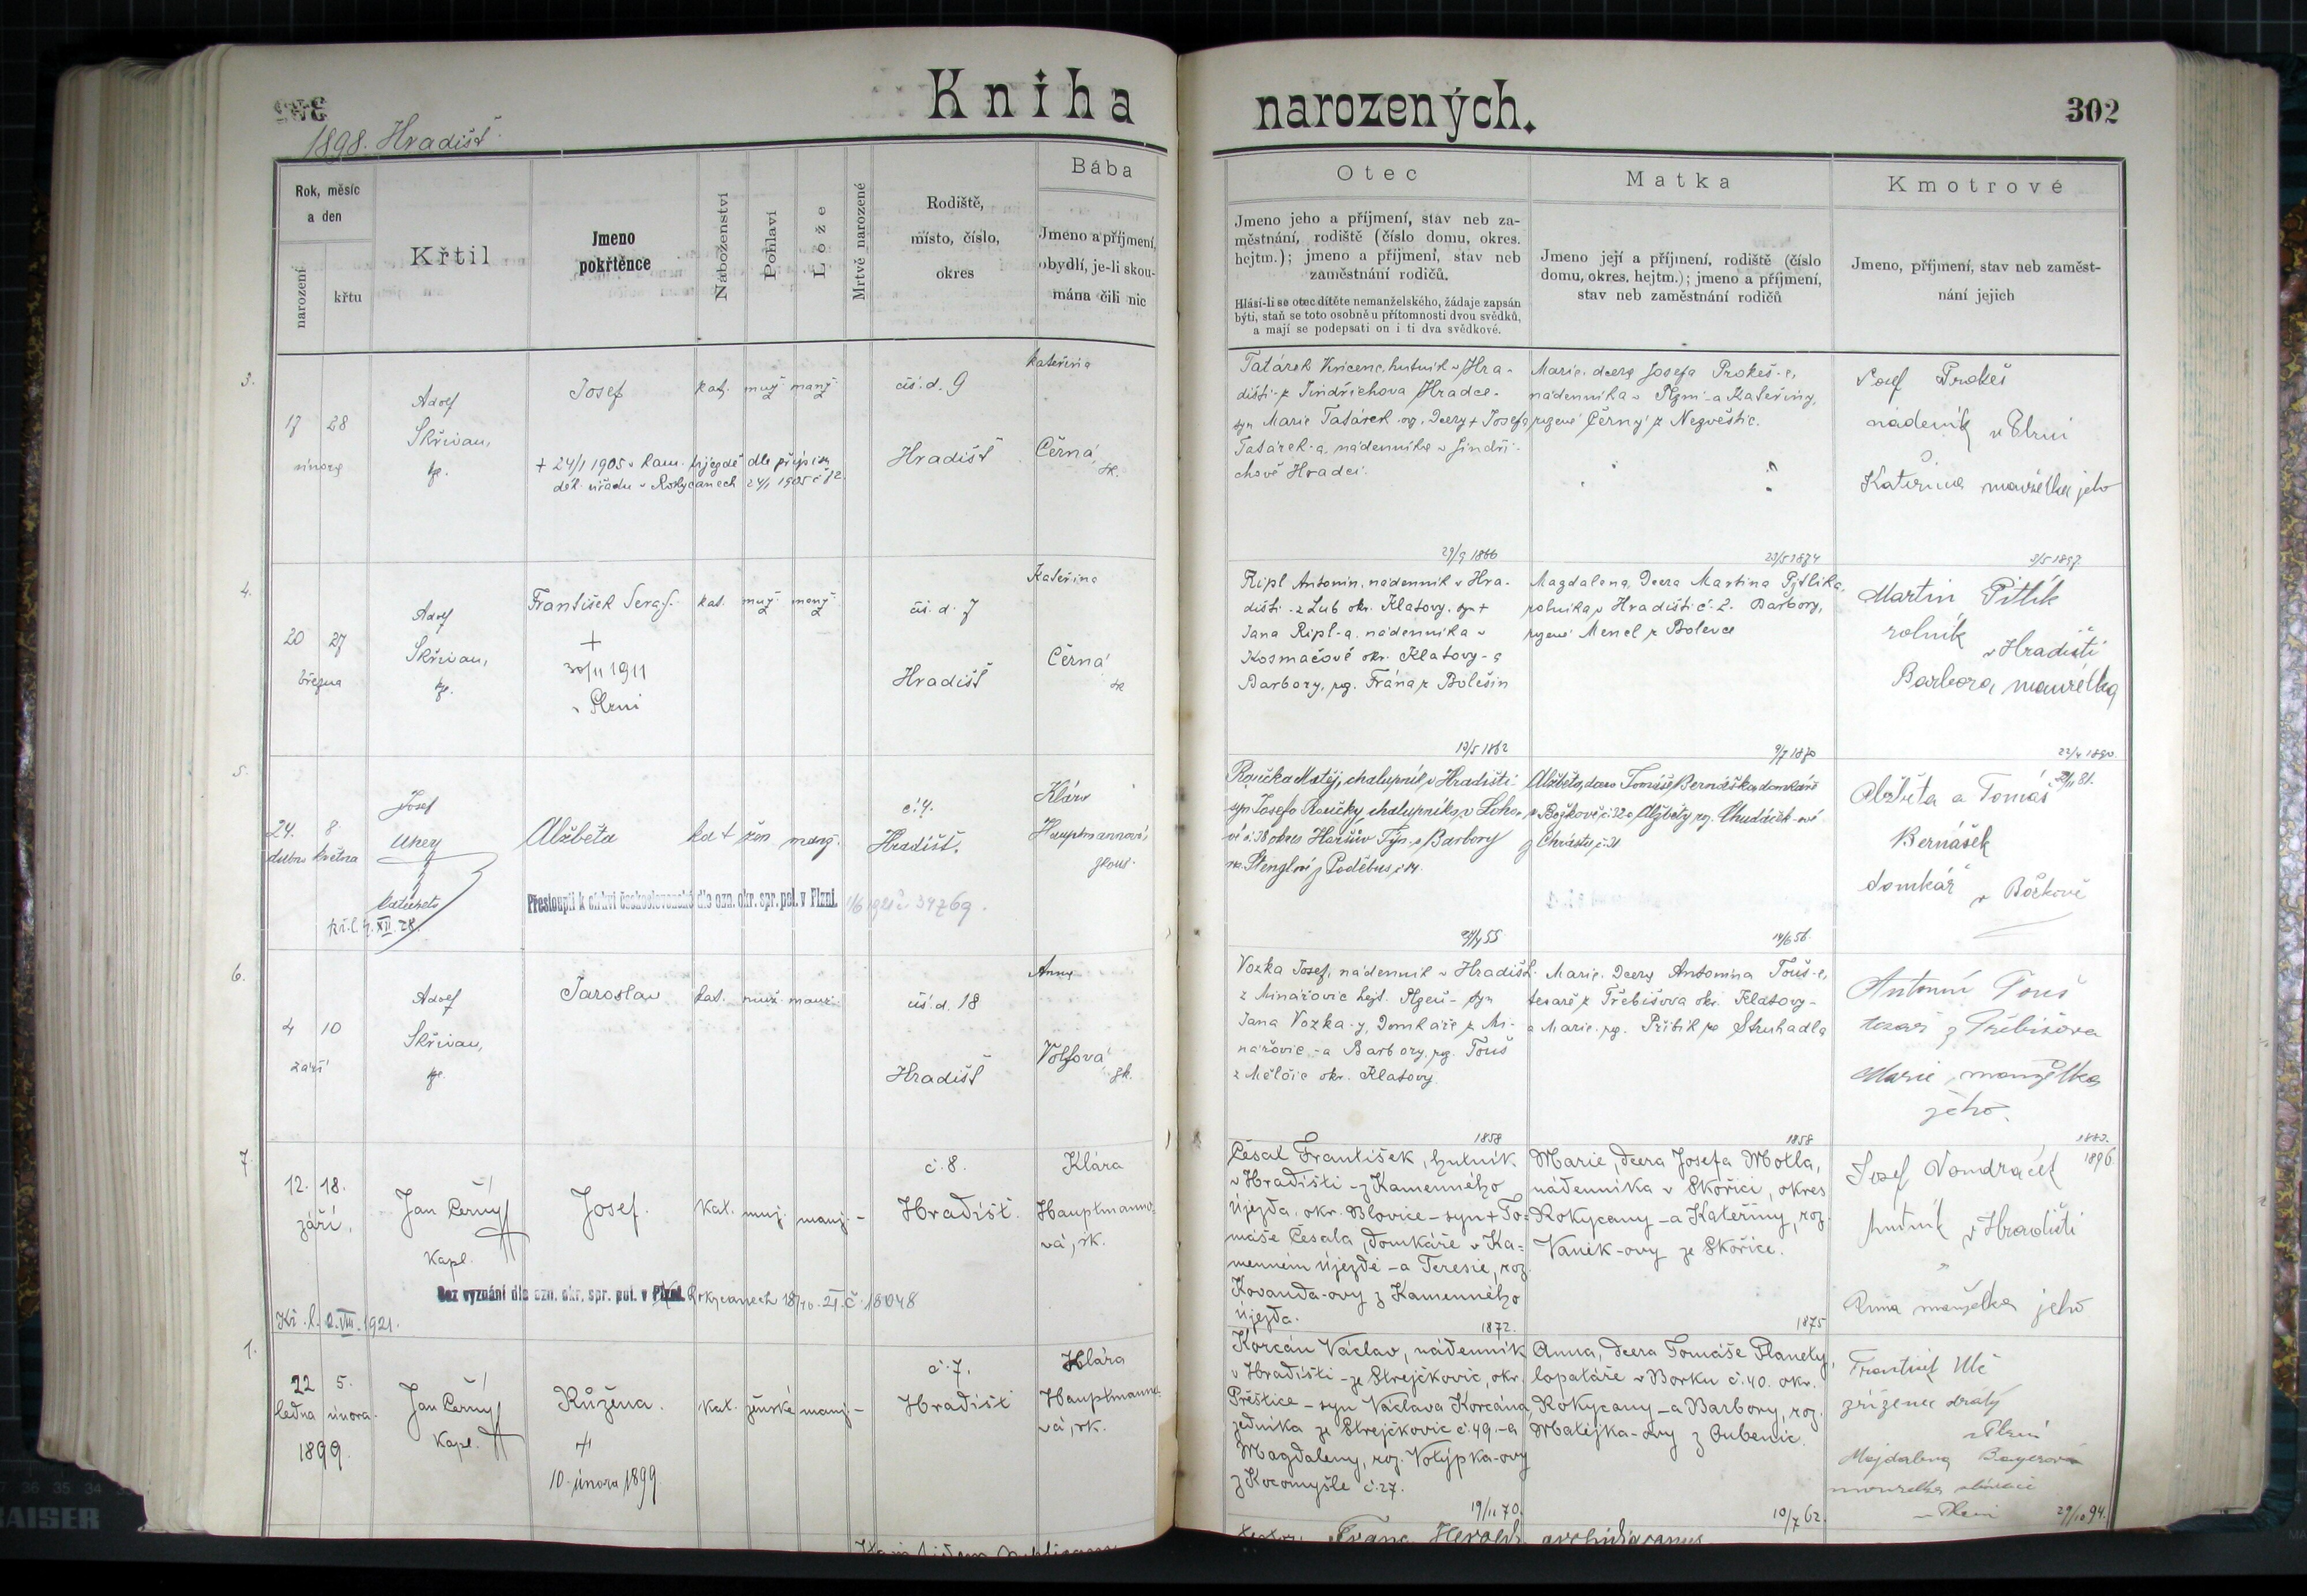 Kniha narozených.
302
1898. Hradišť
Rok, měsíc
a den
narození
křtu
Křtil
Jmeno
pokřtěnce
Náboženství
Pohlaví
Lože
Mrtvě narozené
Rodiště,
místo, číslo,
okres
Bába
Jmeno a příjmení,
obydlí, je-li skou-
mána čili nic
Otec
Jmeno jeho a příjmení, stav neb za-
městnání, rodiště (číslo domu, okres.
hejtm.); jmeno a příjmení, stav neb
zaměstnání rodičů.
Hlásí-li se otec dítěte nemanželského, žádaje zapsán
býti, staň se toto osobně u přítomnosti dvou svědků,
a mají se podepsati on i ti dva svědkové.
Matka
Jmeno její a příjmení, rodiště (číslo
domu, okres. hejtm.); jmeno a příjmení,
stav neb zaměstnání rodičů
Kmotrové
Jmeno, příjmení, stav neb zaměst-
nání jejich
3.
17 28
února
Adolf
Skřivan,
Josef
+ 24/1 1905 v Kam. Újezdě dle přípisu
děk. úřadu v Rokycanech 24/1 1905 č 72.
kat. muž. manž.
čís. d. 9
Hradišť
Kateřina
Černá
Tatárek Vincenc, hutník v Hra-
dišti z Jindřichova Hradce-
syn Marie Tatárek ov. dcery + Josefa
Tatárek-a, nádenníka v Jindři-
chově Hradci.
29/9 1866
Marie, dcera Josefa Prokeš-e,
nádenníka v Plzni-a Kateřiny,
rozené Černý z Nezvěstic.
23/5 1874
Josef Prokeš
nádeník v Plzni
Kateřina manželka jeho
3/5 1897
4.
20 27
března
Adolf
Skřivan,
František Seraf.
+
30/11 1911
v Plzni
kat. muž. manž.
čís. d. 7
Hradišť
Kateřina
Černá
Ripl Antonín, nádenník v Hra-
dišti-z Lub okr. Klatovy, syn +
Jana Ripl-a, nádenníka v
Kosmáčově okr. Klatovy-a
Barbory, roz. Frána z Bolešin
13/5 1862
Magdalena, dcera Martina Pytlíka,
rolníka v Hradišti č. 2. Barbory,
rozené Mencl z Bolevce
9/7 1870
Martin Pitlík
rolník
v Hradišti
Barbora, manželka
22/4 1890.
5.
24. 8.
dubna května
Josef
katecheta
kř. l. XII. 28.
Alžběta
kat žen. manž.
č. 4.
Hradišť.
Klára
Hauptmannová,
Přestoupil k církvi československé dle ozn. okr. spr. pol. v Plzni. 1/6 1921 č 34769.
Roučka Matěj, chalupník v Hradišti
syn Josefa Roučky, chalupníka v
okres Horšův Týn a Barbory
Alžběta, dcera Tomáše Bernáška, domkáře
v Božkově č. 32 a Alžběty roz. Chudáček-ové
z Chrástu č. 21
14/6 56.
Alžběta a Tomáš
Bernášek
domkář v Božkově
6.
4 10
září
Adolf
Skřivan,
Jaroslav
kat. muž. manž.
čís. d. 18
Hradišť
Anna
Volfová
Vozka Josef, nádenník v Hradišt.
z Minářovic hejt. Plzeň- syn
Jana Vozka-y, domkáře z Mi-
nářovic-a Barbory, roz. Touš
z Mělčic okr. Klatovy.
1858
Marie, dcera Antonína Touš-e,
tesaře z Třebišova okr. Klatovy-
a Marie, roz. Přibík ze Struhadla
1858
Antonín Touš
tesař z
Marie, manželka
jeho.
1882.
7.
12. 18.
září.
Jan Černý
Kapl.
Josef.
Kat. muž. manž. -
č. 8.
Hradišť.
Klára
Hauptmanno-
vá, zk.
Bez vyznání dle ozn. okr. spr. pol. v Plzni. Rokycanech 18/10. 21. č. 18048
Kř. l. 2. VIII. 1921.
Česal František, hutník
v Hradišti - z Kamenného
Újezda, okr. Blovice - syn + To-
máše Česala, domkáře v Ka-
menném Újezdě - a Teresie, roz.
Kovanda-ovy z Kamenného
Újezda.
1872.
Marie, dcera Josefa Motla,
nádenníka v Skořici, okres
Rokycany - a Kateřiny, roz.
Vaněk-ovy ze Skořice.
1875
1896.
Josef Vondráček
hutník v Hradišti
Anna manželka jeho
1.
22 5.
ledna února.
1899.
Jan Černý
Kapl.
Růžena.
+
10. února 1899.
Kat. ženské manž -
č. 7.
Hradišť
Klára
Hauptmanno-
vá, zk.
Korcán Václav, nádenník
v Hradišti - ze Strejčkovic, okr.
Přeštice - syn Václava Korcána,
zedníka ze Strejčkovic č. 49. - a
Magdaleny, roz. Volýpka-ovy
z Kocomyšle č. 27.
19/11 70.
Anna, dcera Tomáše Planety,
lopatáře v Borku č. 40. okr.
Rokycany - a Barbory, roz.
Matějka-ovy z Bubenic.
10/7 62.
František Ulč
zřízenec dráhy
v Plzni
Majdalena Bayerová
manželka
v Plzni
29/10 94.
Franc. Herold, archidiaconus